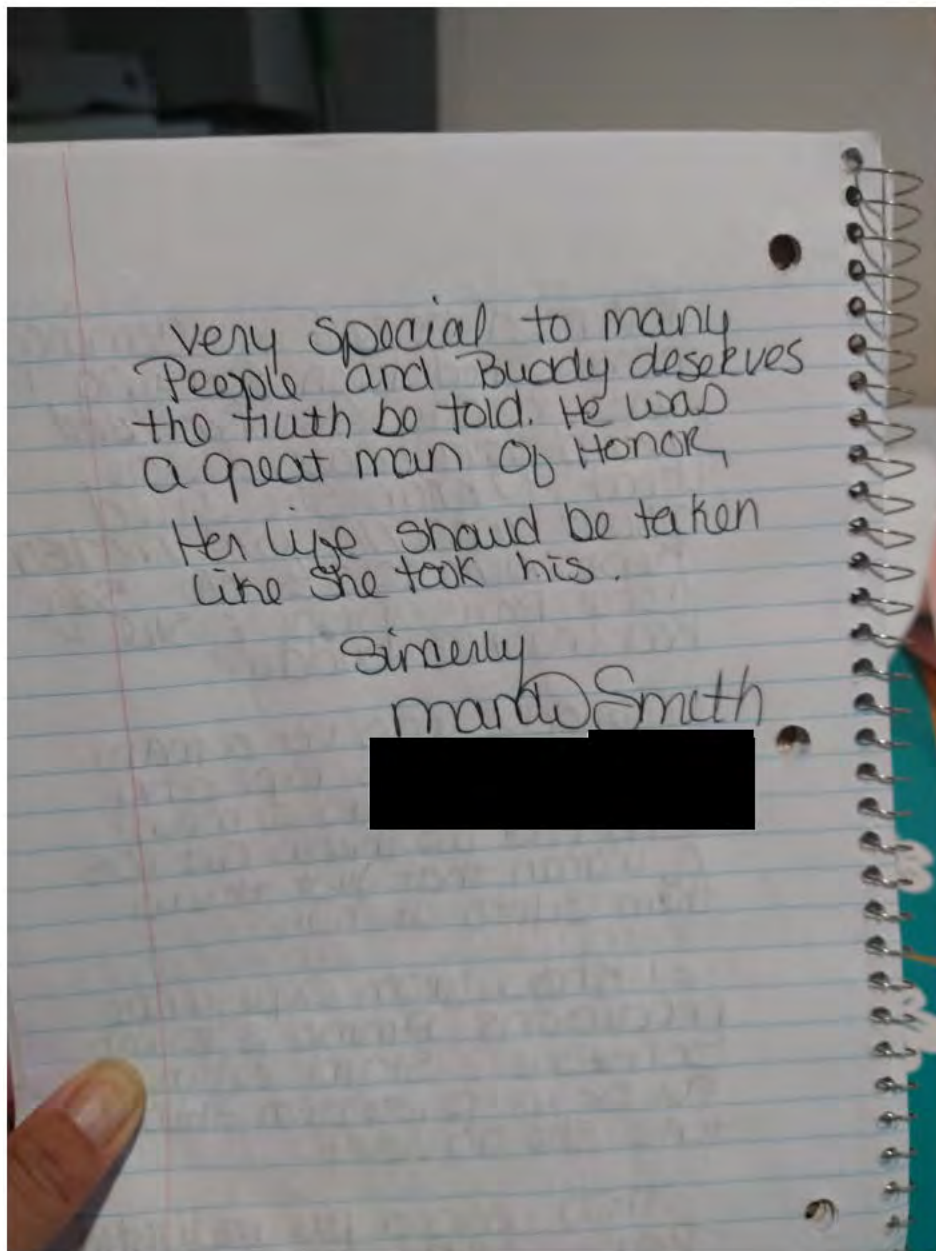 very special to many
People and Buddy deserves
the truth be told. He was
a great man of Honor,
Her life should be taken
like she took his.
Sincerly
Smith